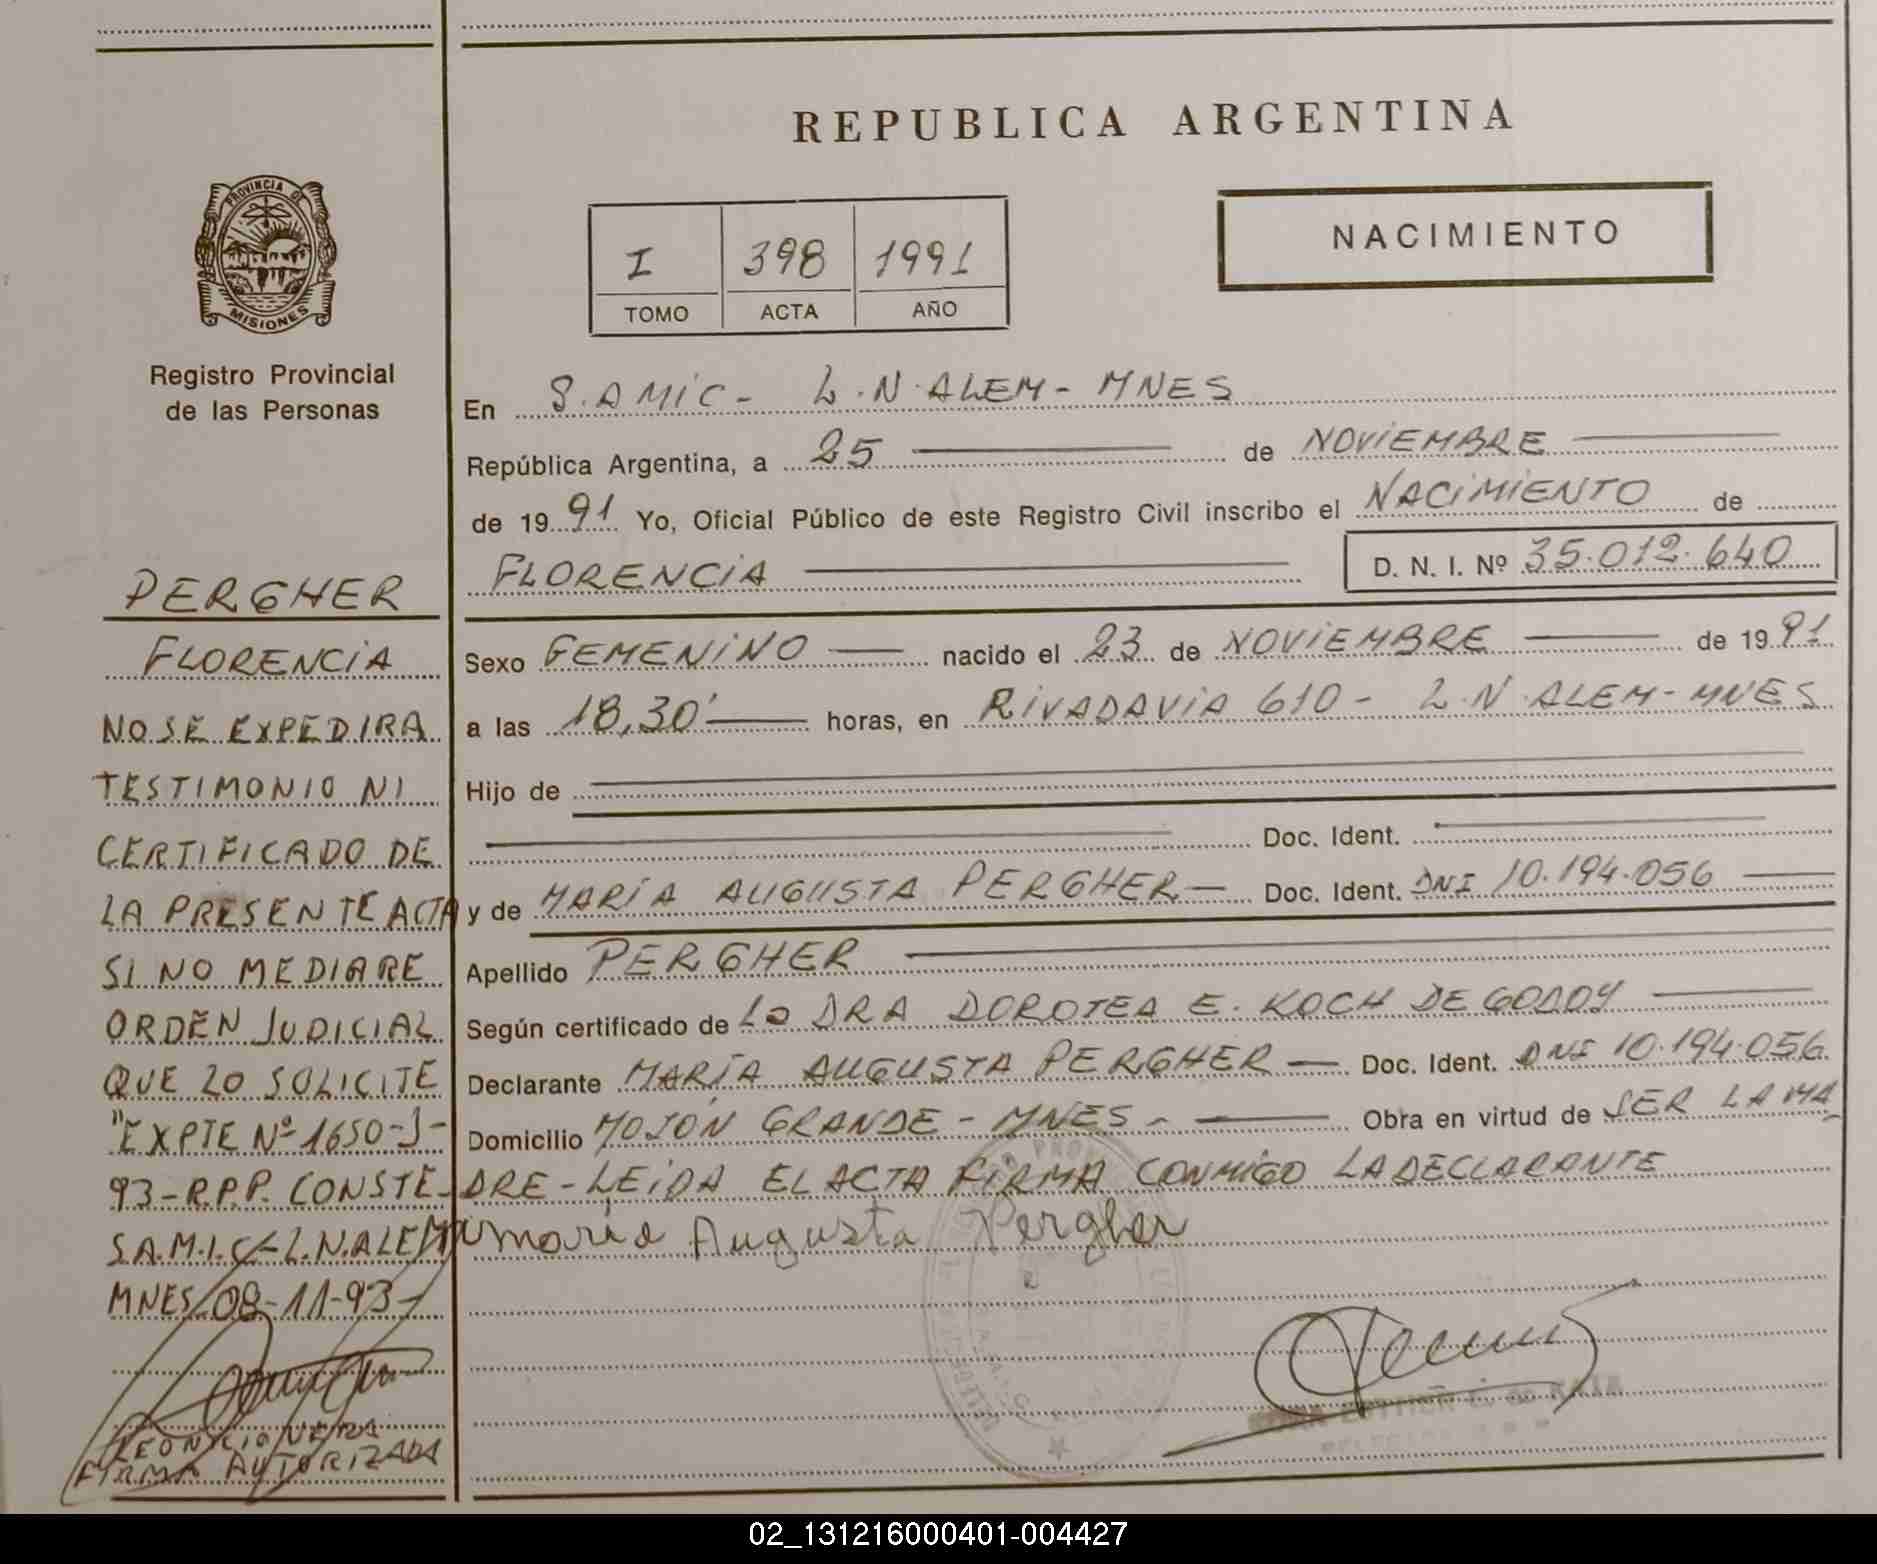 REPUBLICA ARGENTINA
PROVINCIA DE
MISIONES
Registro Provincial
de las Personas
I 398 1991
TOMO ACTA AÑO
NACIMIENTO
En S.AMIC- L.N.ALEM-MNES
República Argentina, a 25 de NOVIEMBRE
de 1991 Yo, Oficial Público de este Registro Civil inscribo el NACIMIENTO de
FLORENCIA D. N. I. Nº 35.012.640
Sexo FEMENINO nacido el 23 de NOVIEMBRE de 1991
a las 18,30' horas, en RIVADAVIA 610- L.N.ALEM-MNES
Hijo de
Doc. Ident.
y de MARÍA AUGUSTA PERGHER Doc. Ident. DNI 10.194.056
Apellido PERGHER
Según certificado de LA DRA DOROTEA E. KOCH DE GODOY
Declarante MARÍA AUGUSTA PERGHER Doc. Ident. DNI 10.194.056
Domicilio MOJÓN GRANDE-MNES- Obra en virtud de SER LA MA
DRE-LEIDA EL ACTA FIRMA CONMIGO LA DECLARANTE
maria Augusta Pergher
PERGHER
FLORENCIA
NO SE EXPEDIRA
TESTIMONIO NI
CERTIFICADO DE
LA PRESENTE ACTA
SI NO MEDIARE
ORDEN JUDICIAL
QUE LO SOLICITE
"EXPTE Nº 1650-J-
93-R.P.P. CONSTE-
S.A.M.I.C-L.N.ALEM
MNES-08-11-93-
FIRMA AUTORIZADA
02_131216000401-004427